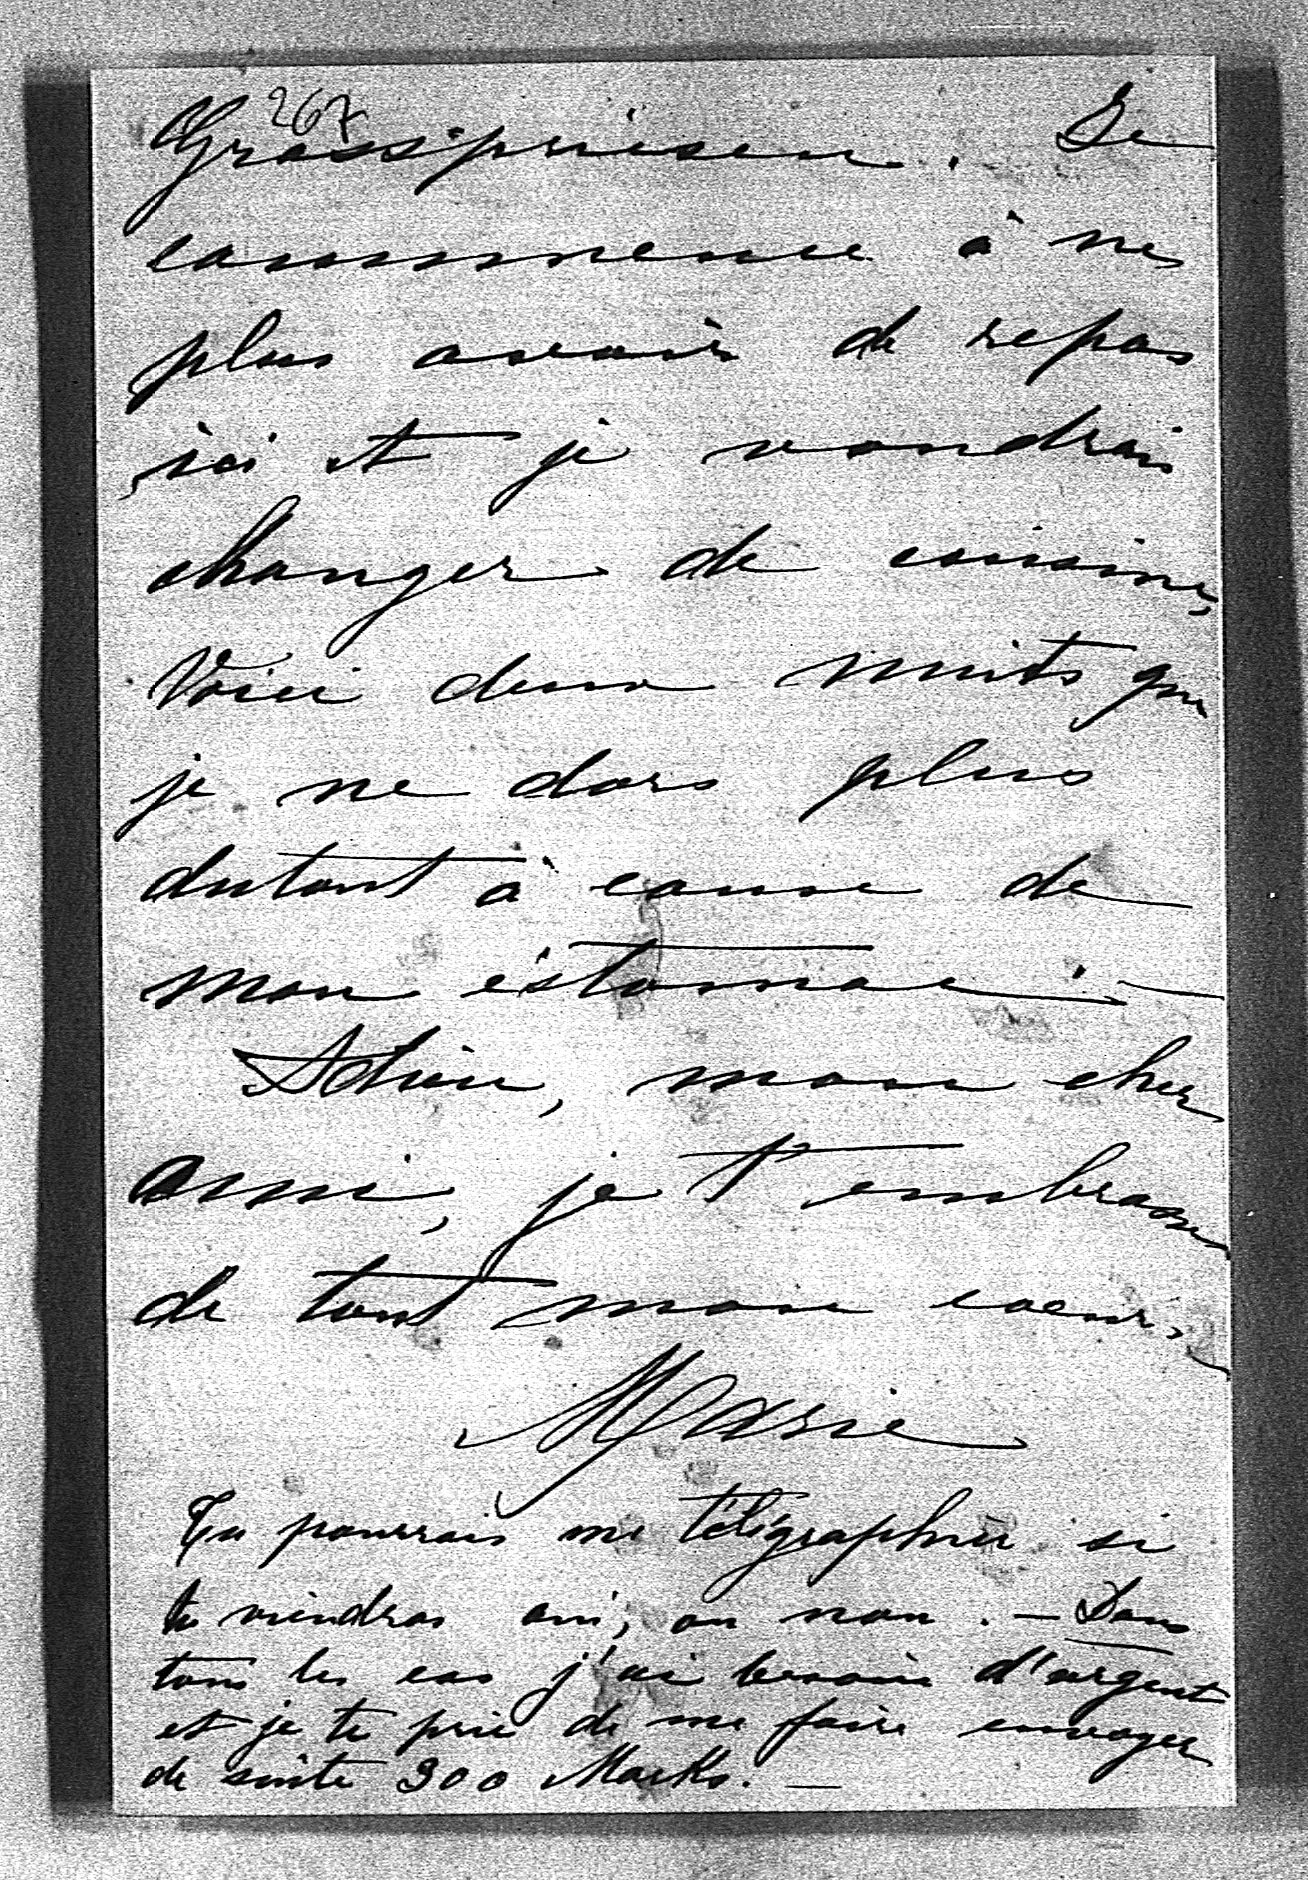 267
Grosspriesen. Je
commence à ne
plus avoir de repos
ici et je voudrais
changer de cuisine,
Voici deux nuits que
je ne dors plus
dutout à cause de
mon éstomac. —
Adieu, mon cher
ami, je t'embrasse
de tout mon coeur.
Marie
Tu pourrais me télégraphier si
tu viendras oui, ou non. — Dans
tous les cas j'ai besoin d'argent
et je te prie de me faire envoyer
de suite 300 Marks. —